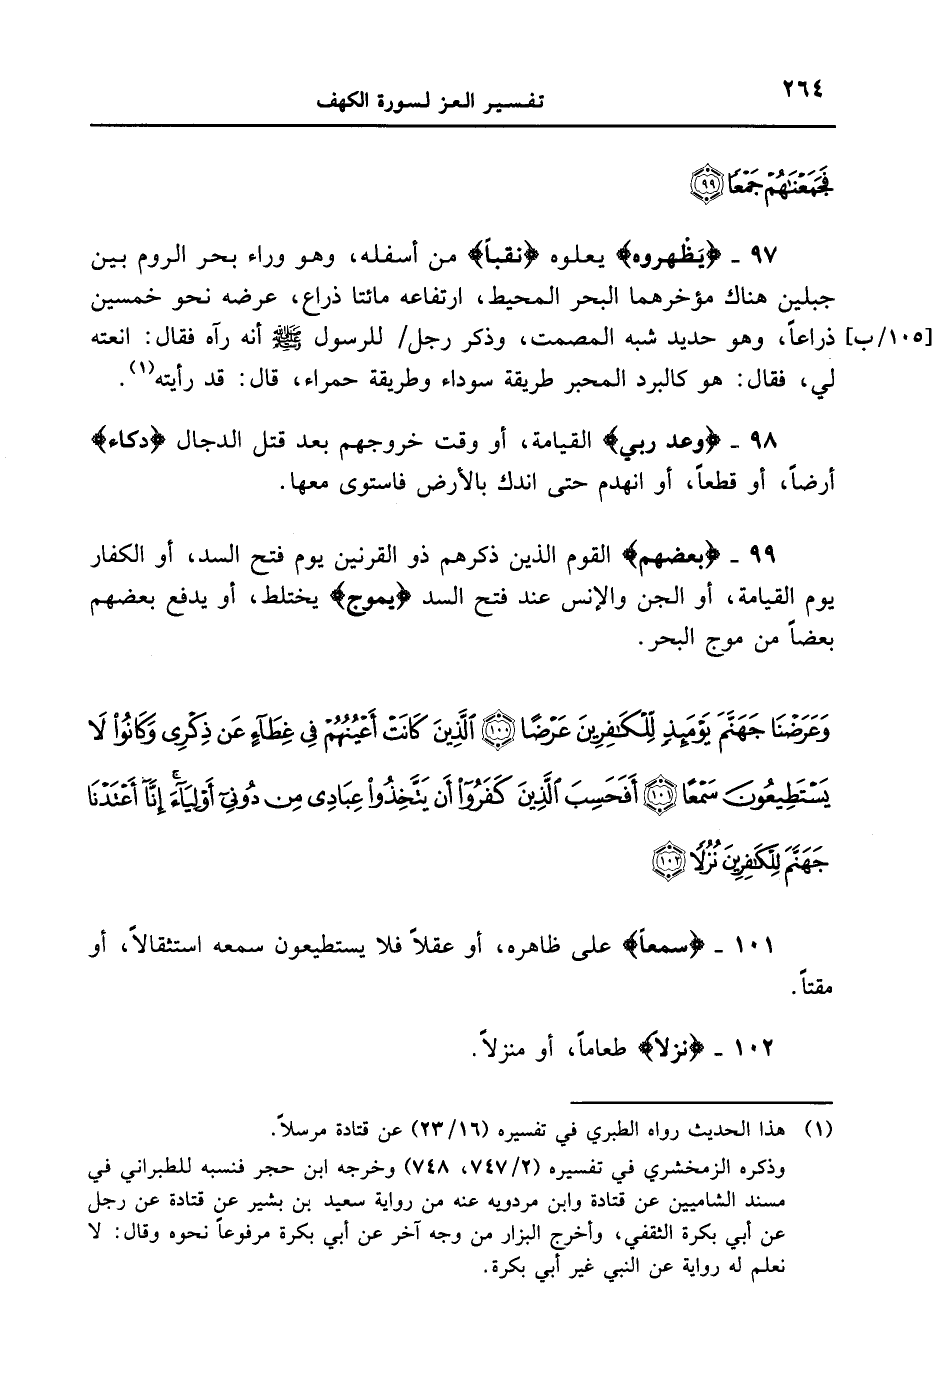 ٢٦٤
تفسير العز لسورة الكهف
فَجَمَعْنَٰهُمْ جَمْعًا ﴿٩٩﴾
٩٧ ـ ﴿يَظْهروه﴾ يعلوه ﴿نقباً﴾ من أسفله، وهو وراء بحر الروم بين
جبلين هناك مؤخرهما البحر المحيط، ارتفاعه مائتا ذراع، عرضه نحو خمسين
[١٠٥/ب] ذراعاً، وهو حديد شبه المصمت، وذكر رجل/ للرسول ﷺ أنه رآه فقال: انعته
لي، فقال: هو كالبرد المحبر طريقة سوداء وطريقة حمراء، قال: قد رأيته(١).
٩٨ ـ ﴿وعد ربي﴾ القيامة، أو وقت خروجهم بعد قتل الدجال ﴿دكاء﴾
أرضاً، أو قطعاً، أو انهدم حتى اندك بالأرض فاستوى معها.
٩٩ ـ ﴿بعضهم﴾ القوم الذين ذكرهم ذو القرنين يوم فتح السد، أو الكفار
يوم القيامة، أو الجن والإنس عند فتح السد ﴿يموج﴾ يختلط، أو يدفع بعضهم
بعضاً من موج البحر.
وَعَرَضْنَا جَهَنَّمَ يَوْمَئِذٍ لِّلْكَٰفِرِينَ عَرْضًا ﴿١٠٠﴾ ٱلَّذِينَ كَانَتْ أَعْيُنُهُمْ فِى غِطَآءٍ عَن ذِكْرِى وَكَانُوا۟ لَا
يَسْتَطِيعُونَ سَمْعًا ﴿١٠١﴾ أَفَحَسِبَ ٱلَّذِينَ كَفَرُوٓا۟ أَن يَتَّخِذُوا۟ عِبَادِى مِن دُونِىٓ أَوْلِيَآءَ ۚ إِنَّآ أَعْتَدْنَا
جَهَنَّمَ لِلْكَٰفِرِينَ نُزُلًا ﴿١٠٢﴾
١٠١ ـ ﴿سمعاً﴾ على ظاهره، أو عقلاً فلا يستطيعون سمعه استثقالاً، أو
مقتاً.
١٠٢ ـ ﴿نزلاً﴾ طعاماً، أو منزلاً.
(١) هذا الحديث رواه الطبري في تفسيره (٢٣/١٦) عن قتادة مرسلاً.
وذكره الزمخشري في تفسيره (٧٤٧/٢، ٧٤٨) وخرجه ابن حجر فنسبه للطبراني في
مسند الشاميين عن قتادة وابن مردويه عنه من رواية سعيد بن بشير عن قتادة عن رجل
عن أبي بكرة الثقفي، وأخرج البزار من وجه آخر عن أبي بكرة مرفوعاً نحوه وقال: لا
نعلم له رواية عن النبي غير أبي بكرة.